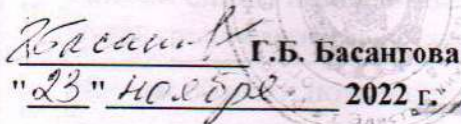 Г.Б. Басангова
"23" ноября 2022 г.